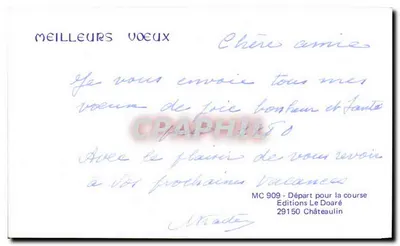 MEILLEURS VŒUX
Chère amie
Je vous envoie tous mes
voeux de joie bonheur et Santé
CRAPHIL
Avec le plaisir de vous revoir
a vos prochaines vacances
MC 909 - Départ pour la course
Editions Le Doaré
29150 Châteaulin